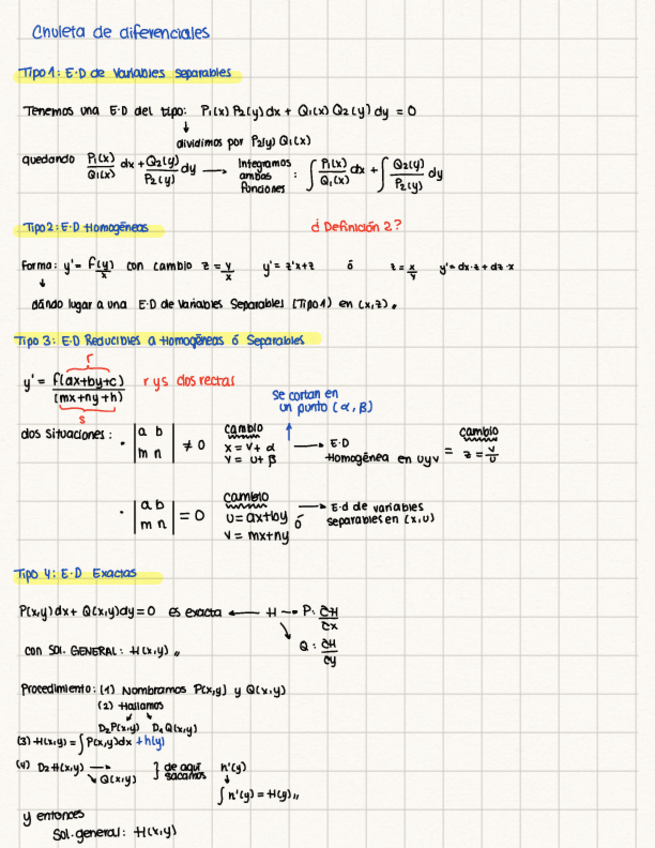 Chuleta de diferenciales
Tipo 1: E·D de Variables Separables
Tenemos una E·D del tipo: P₁(x) P₂(y) dx + Q₁(x) Q₂(y) dy = 0
↓
dividimos por P₂(y) Q₁(x)
quedando P₁(x)/Q₁(x) dx + Q₂(y)/P₂(y) dy → Integramos ambas funciones : ∫ P₁(x)/Q₁(x) dx + ∫ Q₂(y)/P₂(y) dy
Tipo 2: E·D Homogéneas
¿Definición 2?
Forma: y' = f(y/x) con cambio z = y/x y' = z'x+z ó z = x/y y' = dx·z + dz·x
↓
dándo lugar a una E·D de Variables Separables (Tipo 1) en (x,z).
Tipo 3: E·D Reducibles a Homogéneas ó Separables
r
y' = f(ax+by+c)/(mx+ny+h) r y s dos rectas
s
se cortan en
un punto (α, β)
dos situaciones: · |a b / m n| ≠ 0 cambio x = v + α y = u + β → E·D Homogénea en u y v = cambio z = v/u
· |a b / m n| = 0 cambio u = ax+by ó v = mx+ny → E·d de variables separables en (x,u)
Tipo 4: E·D Exactas
P(x,y)dx + Q(x,y)dy = 0 es exacta ← H → P: ∂H/∂x
Q: ∂H/∂y
con Sol. GENERAL: H(x,y)
Procedimiento: (1) Nombramos P(x,y) y Q(x,y)
(2) Hallamos
D₂P(x,y) D₁Q(x,y)
(3) H(x,y) = ∫ P(x,y)dx + h(y)
(4) D₂H(x,y) → Q(x,y) } de aquí sacamos h'(y)
↓
∫ h'(y) = H(y)
y entonces
Sol. general: H(x,y)